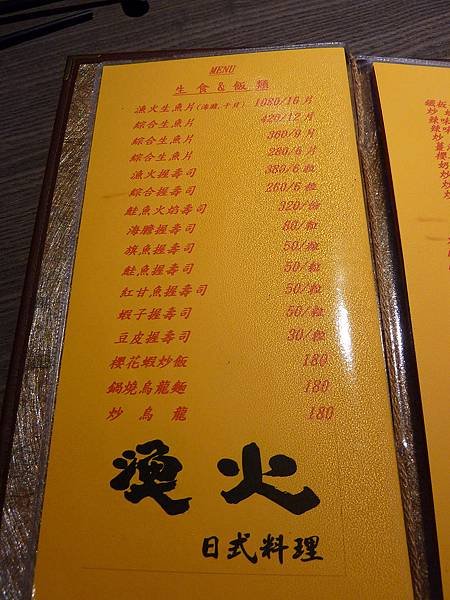 MENU
生食&飯麵
漁火生魚片(海膽.干貝) 1080/16片
綜合生魚片 420/12片
綜合生魚片 360/9片
綜合生魚片 280/6片
漁火握壽司 380/6粒
綜合握壽司 260/6粒
鮭魚火焰壽司 320/份
海膽握壽司 80/粒
旗魚握壽司 50/粒
鮭魚握壽司 50/粒
紅甘魚握壽司 50/粒
蝦子握壽司 50/粒
豆皮握壽司 30/粒
櫻花蝦炒飯 180
鍋燒烏龍麵 180
炒烏龍 180
漁火
日式料理